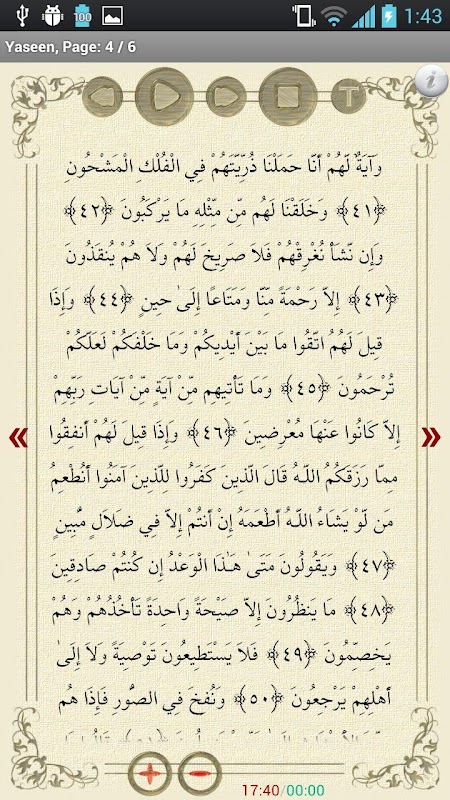 100
1:43
Yaseen, Page: 4 / 6
i
T
وَآيَةٌ لَّهُمْ أَنَّا حَمَلْنَا ذُرِّيَّتَهُمْ فِي الْفُلْكِ الْمَشْحُونِ
﴿٤١﴾ وَخَلَقْنَا لَهُم مِّن مِّثْلِهِ مَا يَرْكَبُونَ ﴿٤٢﴾
وَإِن نَّشَأْ نُغْرِقْهُمْ فَلَا صَرِيخَ لَهُمْ وَلَا هُمْ يُنقَذُونَ
﴿٤٣﴾ إِلَّا رَحْمَةً مِّنَّا وَمَتَاعًا إِلَىٰ حِينٍ ﴿٤٤﴾ وَإِذَا
قِيلَ لَهُمُ اتَّقُوا مَا بَيْنَ أَيْدِيكُمْ وَمَا خَلْفَكُمْ لَعَلَّكُمْ
تُرْحَمُونَ ﴿٤٥﴾ وَمَا تَأْتِيهِم مِّنْ آيَةٍ مِّنْ آيَاتِ رَبِّهِمْ
إِلَّا كَانُوا عَنْهَا مُعْرِضِينَ ﴿٤٦﴾ وَإِذَا قِيلَ لَهُمْ أَنفِقُوا
مِمَّا رَزَقَكُمُ اللَّهُ قَالَ الَّذِينَ كَفَرُوا لِلَّذِينَ آمَنُوا أَنُطْعِمُ
مَن لَّوْ يَشَاءُ اللَّهُ أَطْعَمَهُ إِنْ أَنتُمْ إِلَّا فِي ضَلَالٍ مُّبِينٍ
﴿٤٧﴾ وَيَقُولُونَ مَتَىٰ هَٰذَا الْوَعْدُ إِن كُنتُمْ صَادِقِينَ
﴿٤٨﴾ مَا يَنظُرُونَ إِلَّا صَيْحَةً وَاحِدَةً تَأْخُذُهُمْ وَهُمْ
يَخِصِّمُونَ ﴿٤٩﴾ فَلَا يَسْتَطِيعُونَ تَوْصِيَةً وَلَا إِلَىٰ
أَهْلِهِمْ يَرْجِعُونَ ﴿٥٠﴾ وَنُفِخَ فِي الصُّورِ فَإِذَا هُم
17:40/00:00